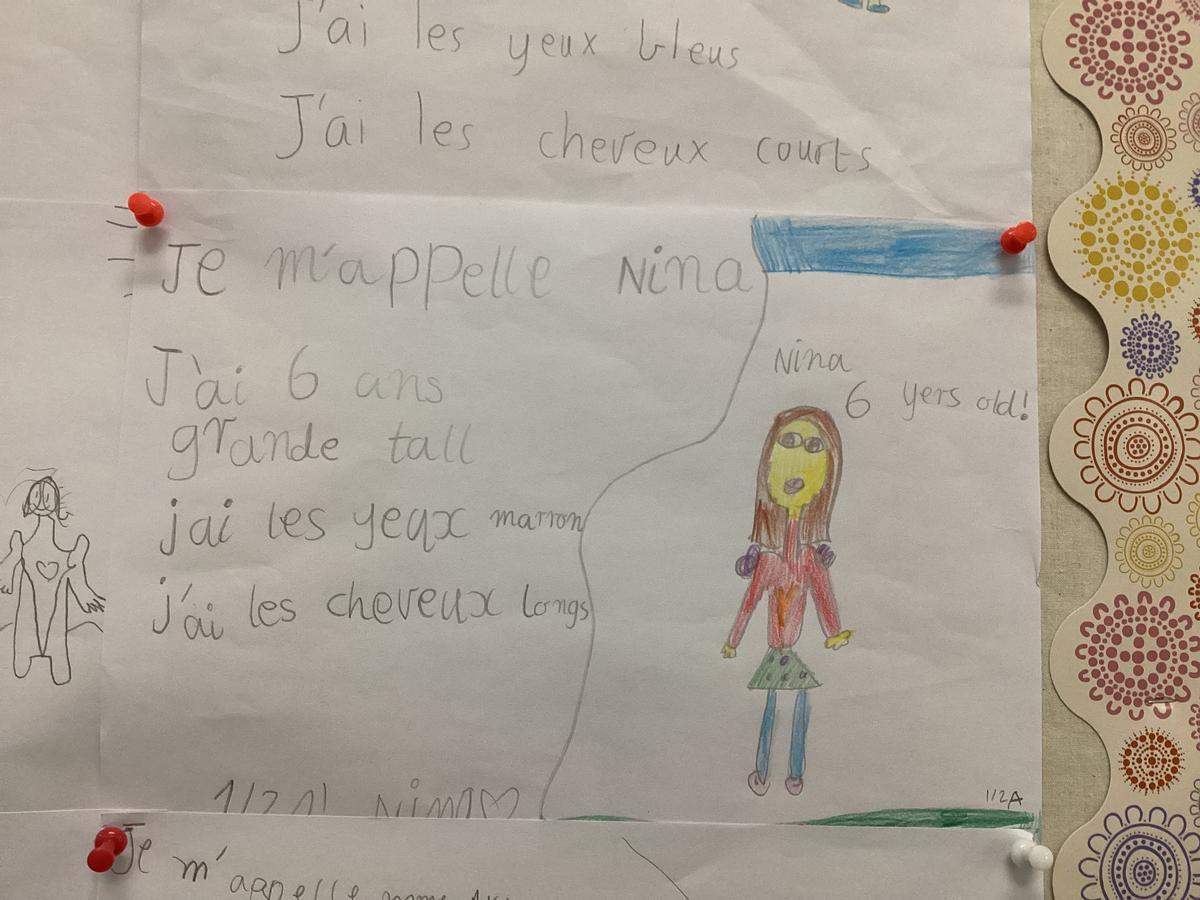 J'ai les yeux bleus
J'ai les cheveux courts
Je m'appelle Nina
J'ai 6 ans
grande tall
jai les yeux marron
j'ai les cheveux longs
Nina
6 yers old!
1/2A
Je m'appelle